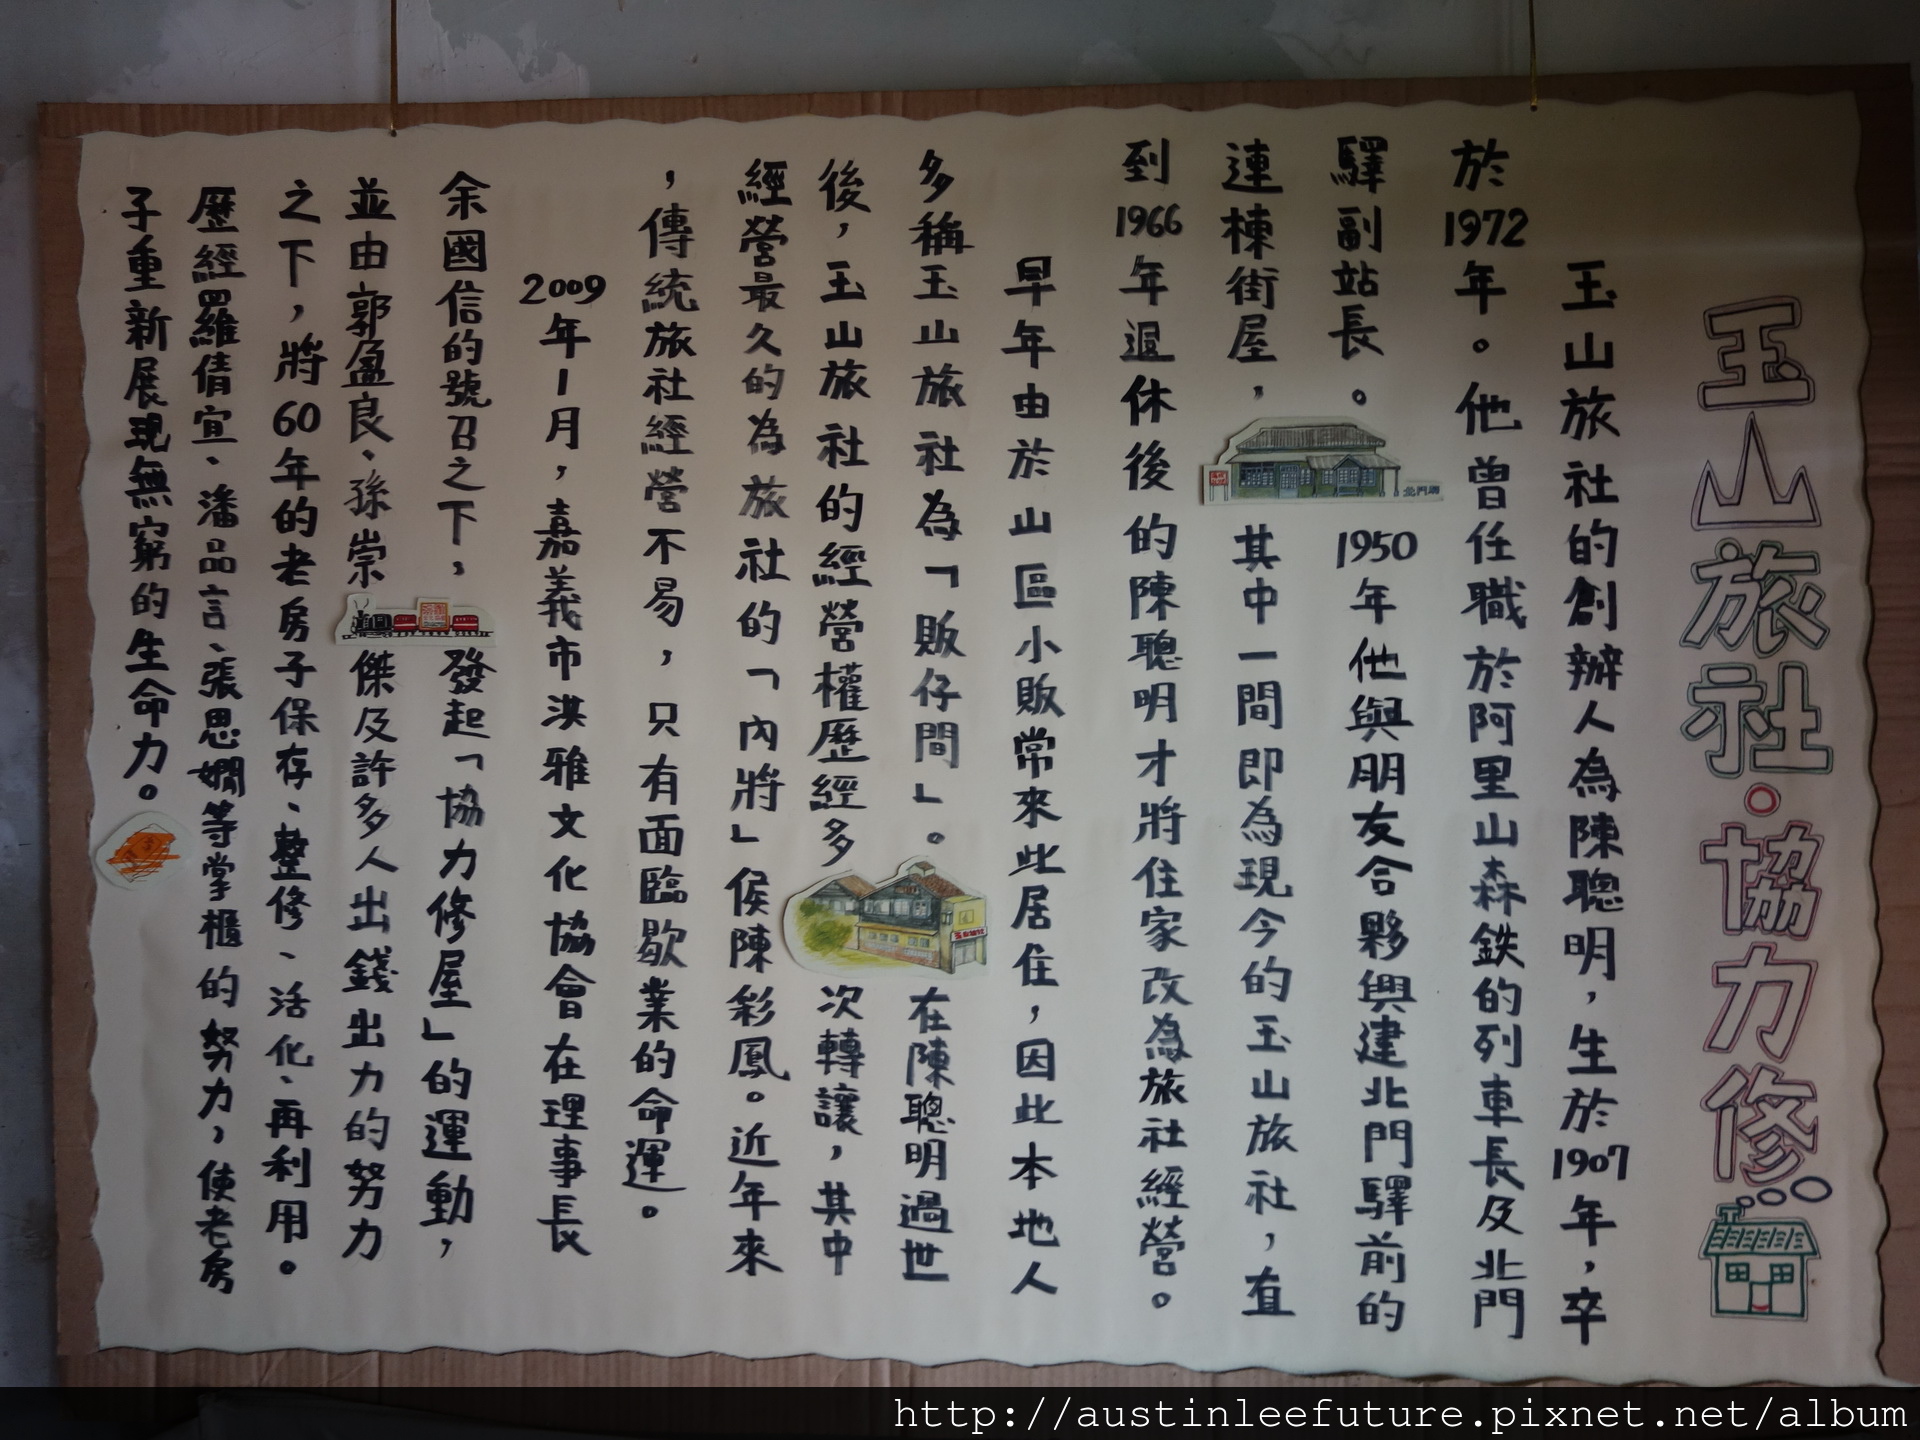 玉山旅社・協力修
玉山旅社的創辦人為陳聰明，生於1907年，卒
於1972年。他曾任職於阿里山森鉄的列車長及北門
驛副站長。1950年他與朋友合夥興建北門驛前的
連棟街屋，其中一間即為現今的玉山旅社，直
到1966年退休後的陳聰明才將住家改為旅社經營。
早年由於山區小販常來此居住，因此本地人
多稱玉山旅社為「販仔間」。在陳聰明過世
後，玉山旅社的經營權歷經多次轉讓，其中
經營最久的為旅社的「內將」侯陳彩鳳。近年來
，傳統旅社經營不易，只有面臨歇業的命運。
2009年1月，嘉義市洪雅文化協會在理事長
余國信的號召之下，發起「協力修屋」的運動，
並由郭盈良、孫崇傑及許多人出錢出力的努力
之下，將60年的老房子保存、整修、活化、再利用。
歷經羅倩宜、潘品言、張思嫺等掌櫃的努力，使老房
子重新展現無窮的生命力。
北門驛
http://austinleefuture.pixnet.net/album